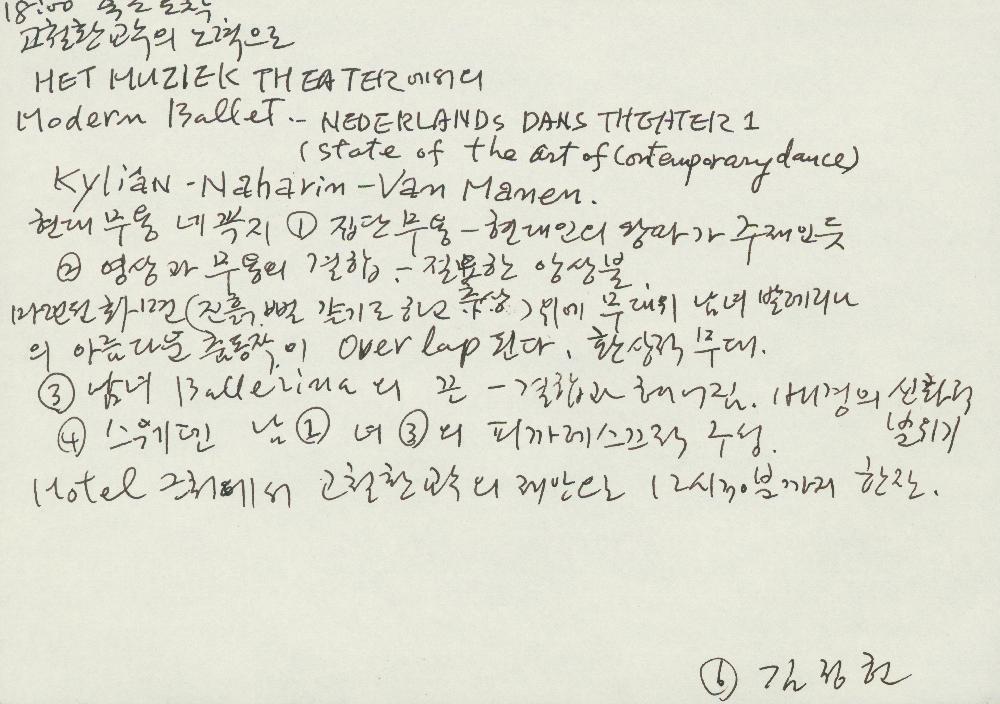 18:00 숙소 도착
고철환 교수의 노력으로
HET MUZIEK THEATER에서의
Modern Ballet. - NEDERLANDS DANS THEATER 1
(state of the art of Contemporary dance)
Kylián - Naharin - Van Manen.
현대 무용 네 꼭지 ① 집단 무용 - 현대인의 왕따가 주제인듯
② 영상과 무용의 결합 - 절묘한 앙상블.
(진흙뻘 같기도 하고 추상) 위에 무대위 남녀 발레리나
의 아름다운 춤동작이 Over lap 된다. 환상적 무대.
③ 남녀 Ballerina의 끈 - 결합과 헤어짐. 배경의 신화적
분위기
④ 스웨덴 남① 녀③의 피카레스크적 구성.
Hotel 근처에서 고철환 교수의 제안으로 12시 30분까지 한잔.
⑥ 김정헌